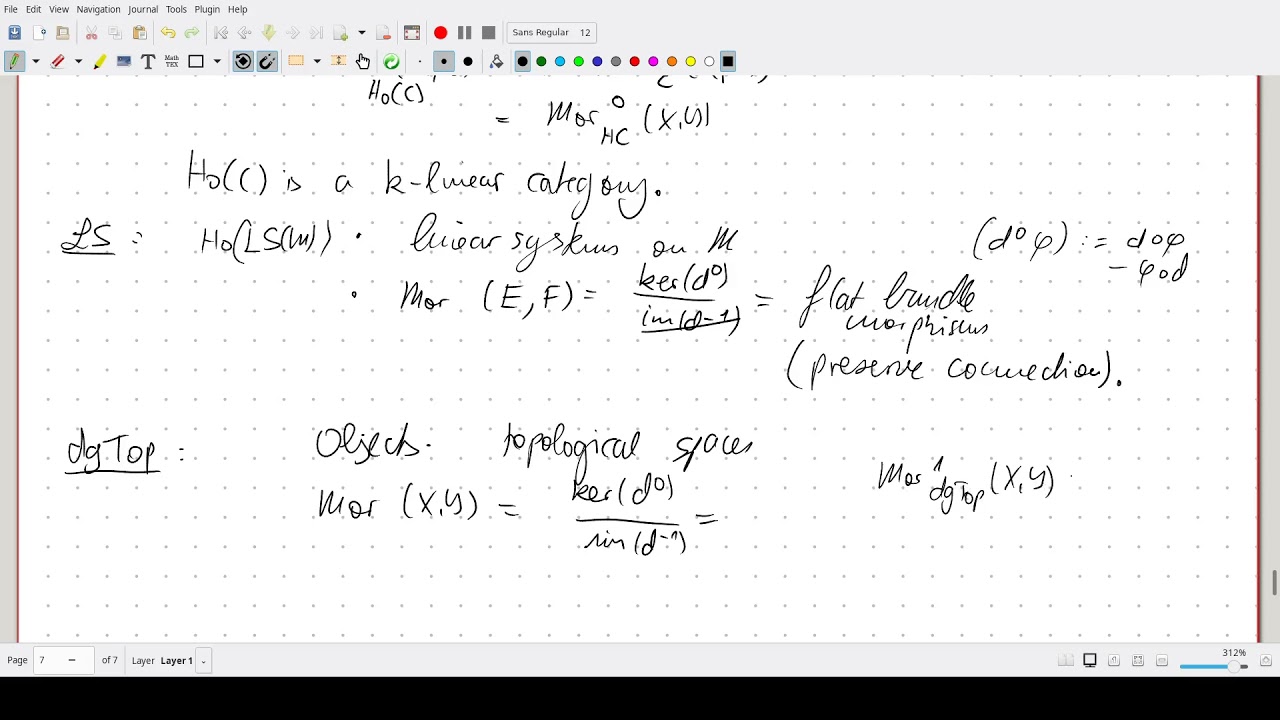 File Edit View Navigation Journal Tools Plugin Help
Sans Regular 12
Ho(C)
= Mor⁰_HC (X,Y)
Ho(C) is a k-linear category.
LS : Ho(LS(M)) • linear systems on M
(d⁰φ) := d∘φ - φ∘d
• Mor (E, F) = ker(d⁰) / im(d⁻¹) = flat bundle morphisms
(preserve connection).
dgTop : Objects. topological spaces
Mor (X,Y) = ker(d⁰) / im(d⁻¹) =
Mor¹_dgTop (X,Y)
Page 7 of 7 Layer Layer 1
312%